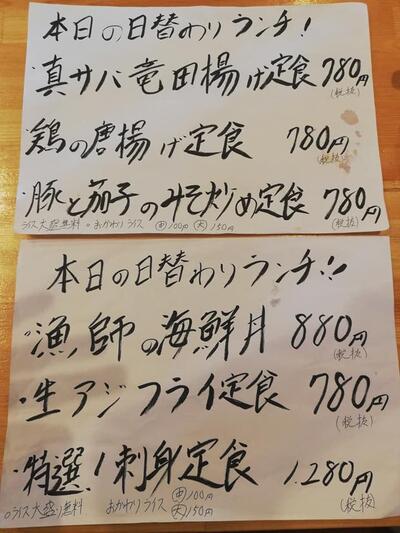 本日の日替わりランチ!
真サバ竜田揚げ定食 780円
(税抜)
鶏の唐揚げ定食 780円
(税抜)
豚と茄子のみそ炒め定食 780円
(税抜)
ライス大盛無料 おかわりライス 中100円 大150円
本日の日替わりランチ!!
漁師の海鮮丼 880円
(税抜)
生アジフライ定食 780円
(税抜)
特選!刺身定食 1.280円
(税抜)
ライス大盛り無料 おかわりライス 中100円
大150円